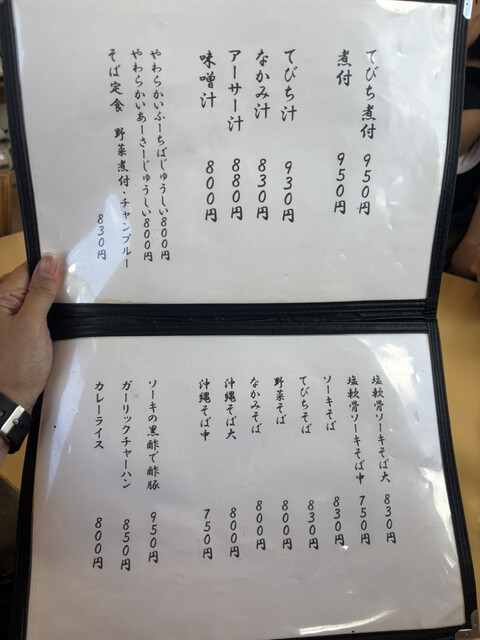 てびち煮付 950円
煮付 950円
てびち汁 930円
なかみ汁 830円
アーサー汁 880円
味噌汁 800円
やわらかいふーちばじゅうしい800円
やわらかいあーさーじゅうしい800円
そば定食 野菜煮付・チャンプルー
830円
塩軟骨ソーキそば大 830円
塩軟骨ソーキそば中 750円
ソーキそば 830円
てびちそば 830円
野菜そば 800円
なかみそば 800円
沖縄そば大 800円
沖縄そば中 750円
ソーキの黒酢で酢豚 950円
ガーリックチャーハン 850円
カレーライス 800円